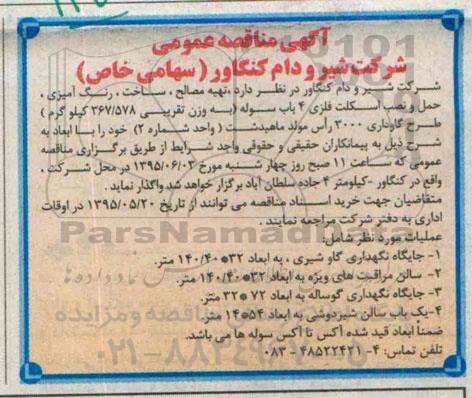 آگهی مناقصه عمومی
شرکت شیر و دام کنگاور ( سهامی خاص )
شرکت شیر و دام کنگاور در نظر دارد ،تهیه مصالح ، ساخت ، رنگ آمیزی ،
حمل و نصب اسکلت فلزی ۴ باب سوله (به وزن تقریبی ۳۶۷/۵۷۸ کیلو گرم )
طرح گاوداری ۳۰۰۰ رأس مولد ماهیدشت ( واحد شماره ۲) خود را با ابعاد به
شرح ذیل به پیمانکاران حقیقی و حقوقی واجد شرایط از طریق برگزاری مناقصه
عمومی که ساعت ۱۱ صبح روز چهار شنبه مورخ ۱۳۹۵/۰۶/۰۳ در محل شرکت ،
واقع در کنگاور -کیلومتر ۴ جاده سلطان آباد برگزار خواهد شد واگذار نماید .
متقاضیان جهت خرید اسناد مناقصه می توانند از تاریخ ۱۳۹۵/۰۵/۲۰ در اوقات
اداری به دفتر شرکت مراجعه نمایند .
عملیات مورد نظر شامل:
۱- جایگاه نگهداری گاو شیری ، به ابعاد ۳۲*۱۴۰/۴۰ متر.
۲- سالن مراقبت های ویژه به ابعاد ۳۲*۱۴۰/۴۰ متر.
۳- جایگاه نگهداری گوساله به ابعاد ۷۲ *۳۲ متر.
۴-یک باب سالن شیردوشی به ابعاد ۵۴*۱۴ متر.
ضمناً ابعاد قید شده آکس تا آکس سوله ها می باشد.
تلفن تماس: ۴- ۴۸۵۲۲۴۲۱ - ۰۸۳
ParsNamadData